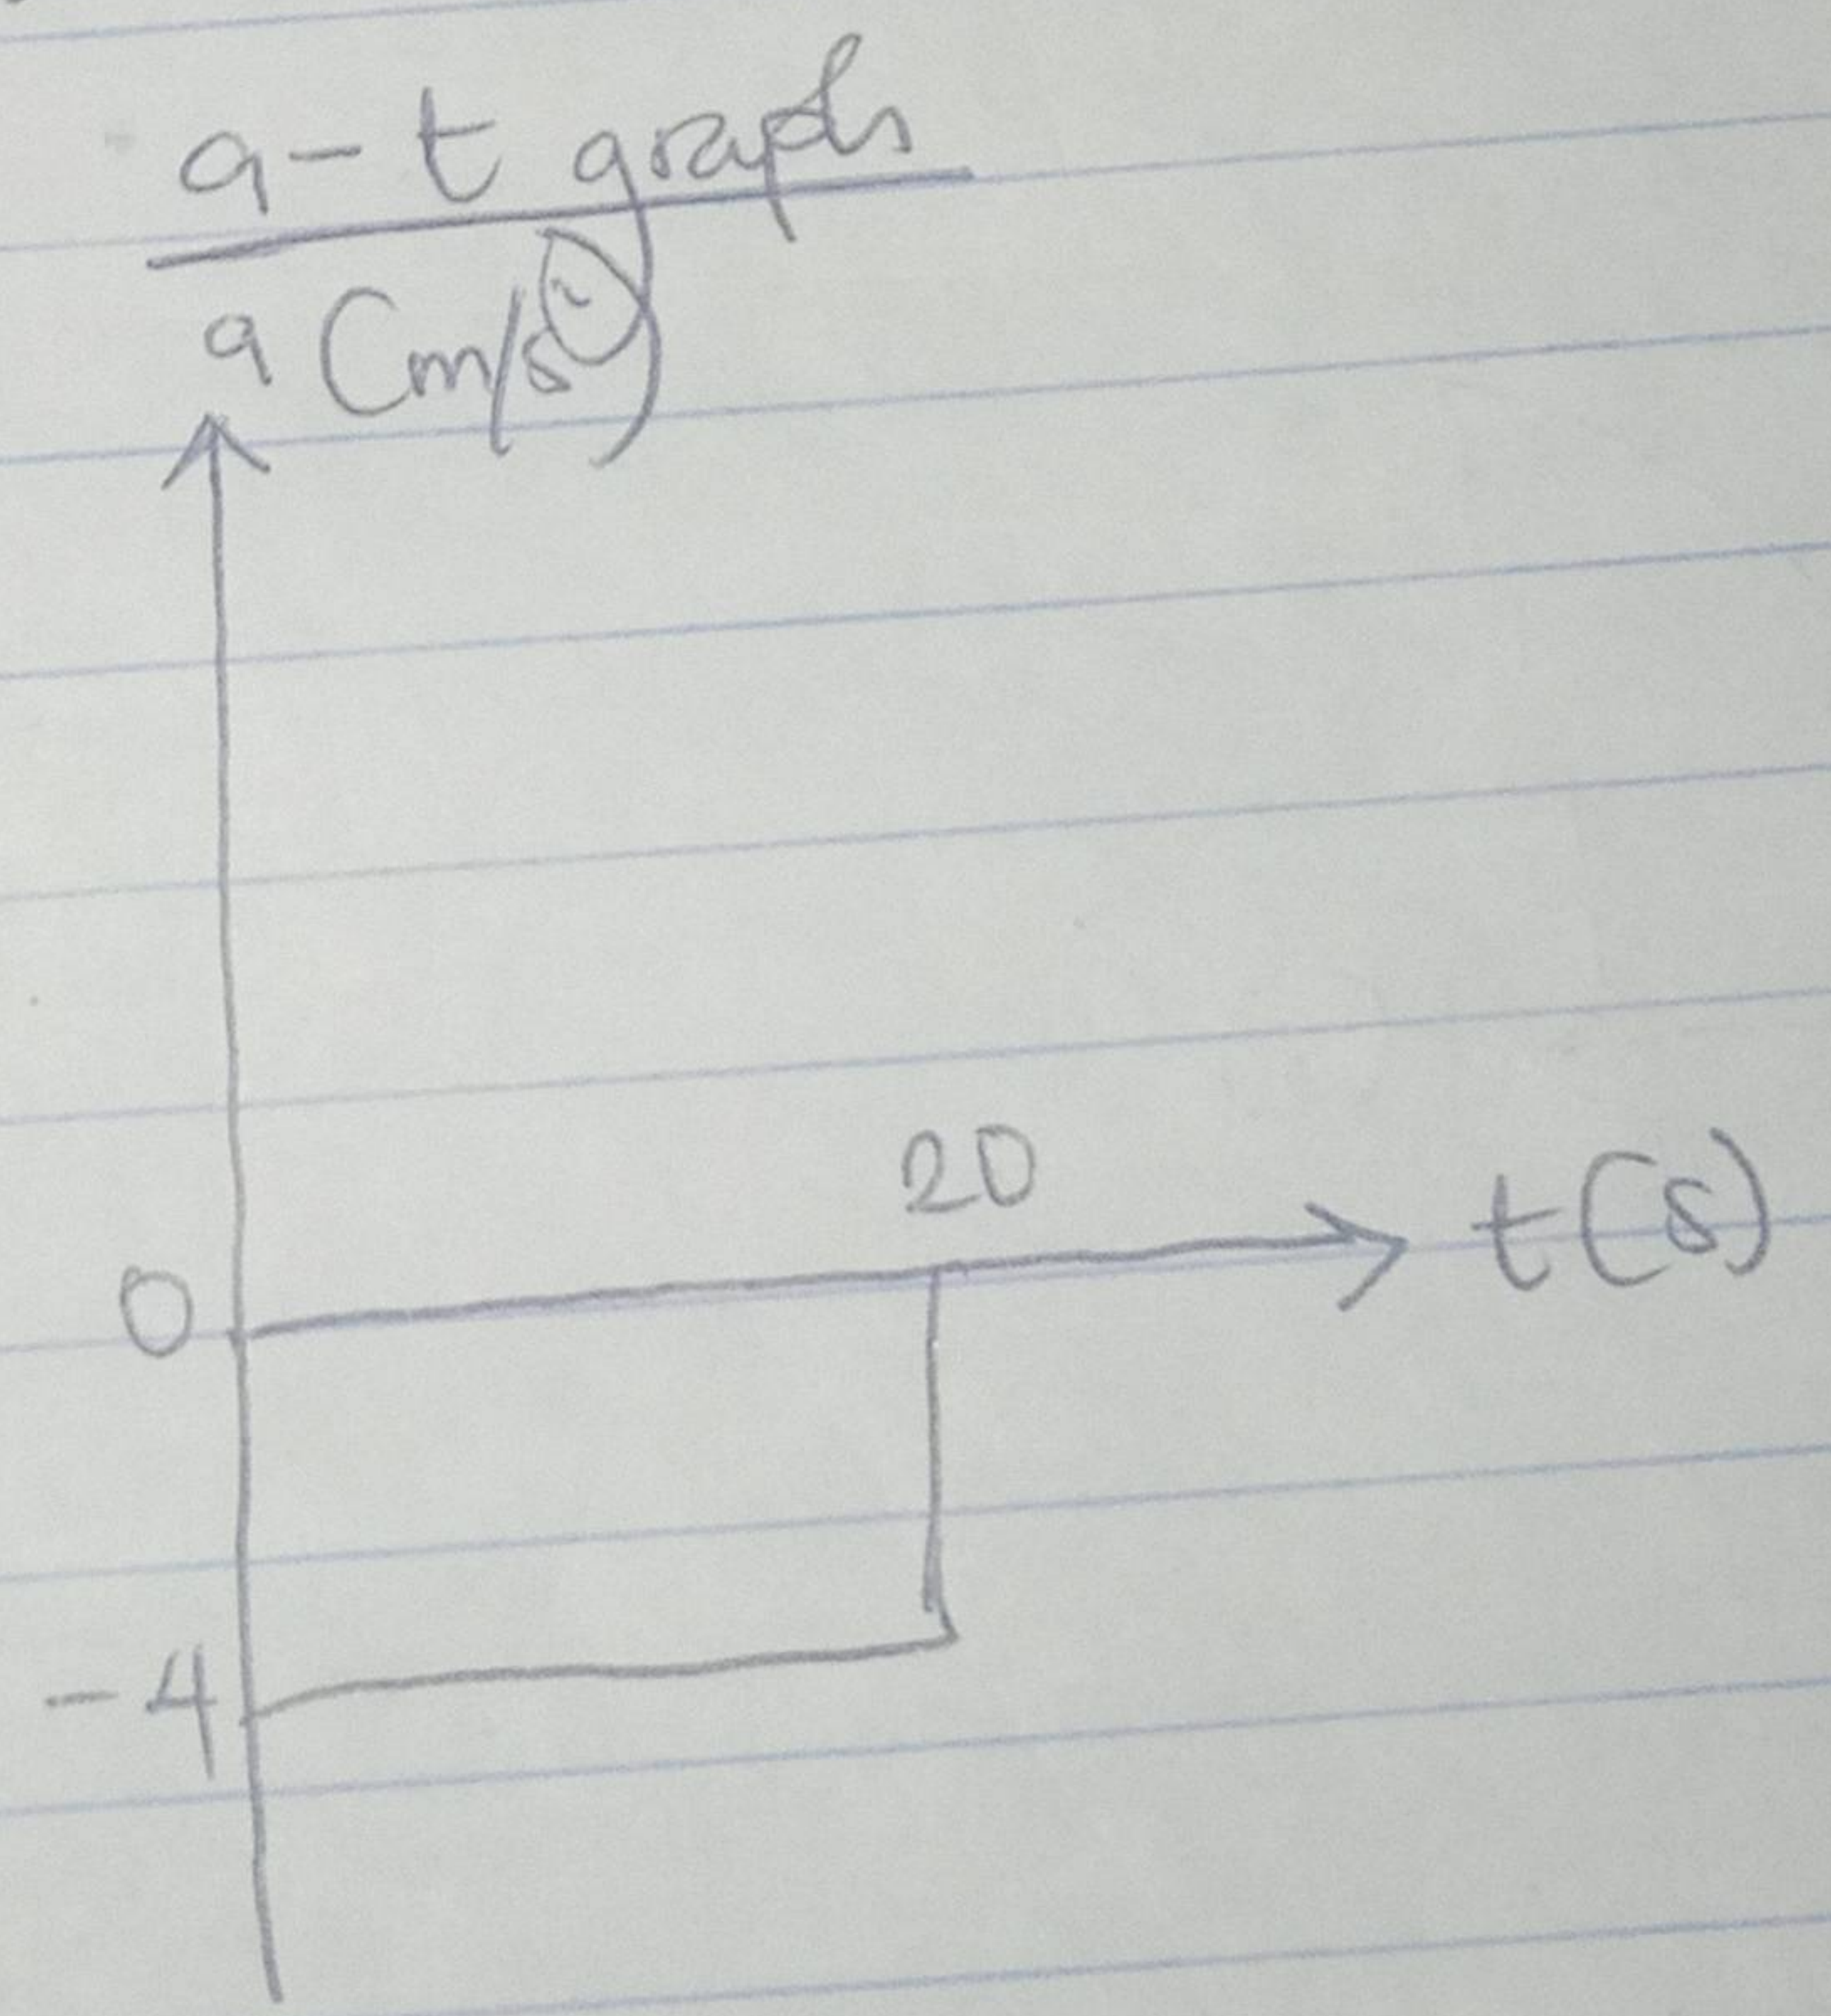 a-t graph
a (m/s²)
20
t(s)
0
-4